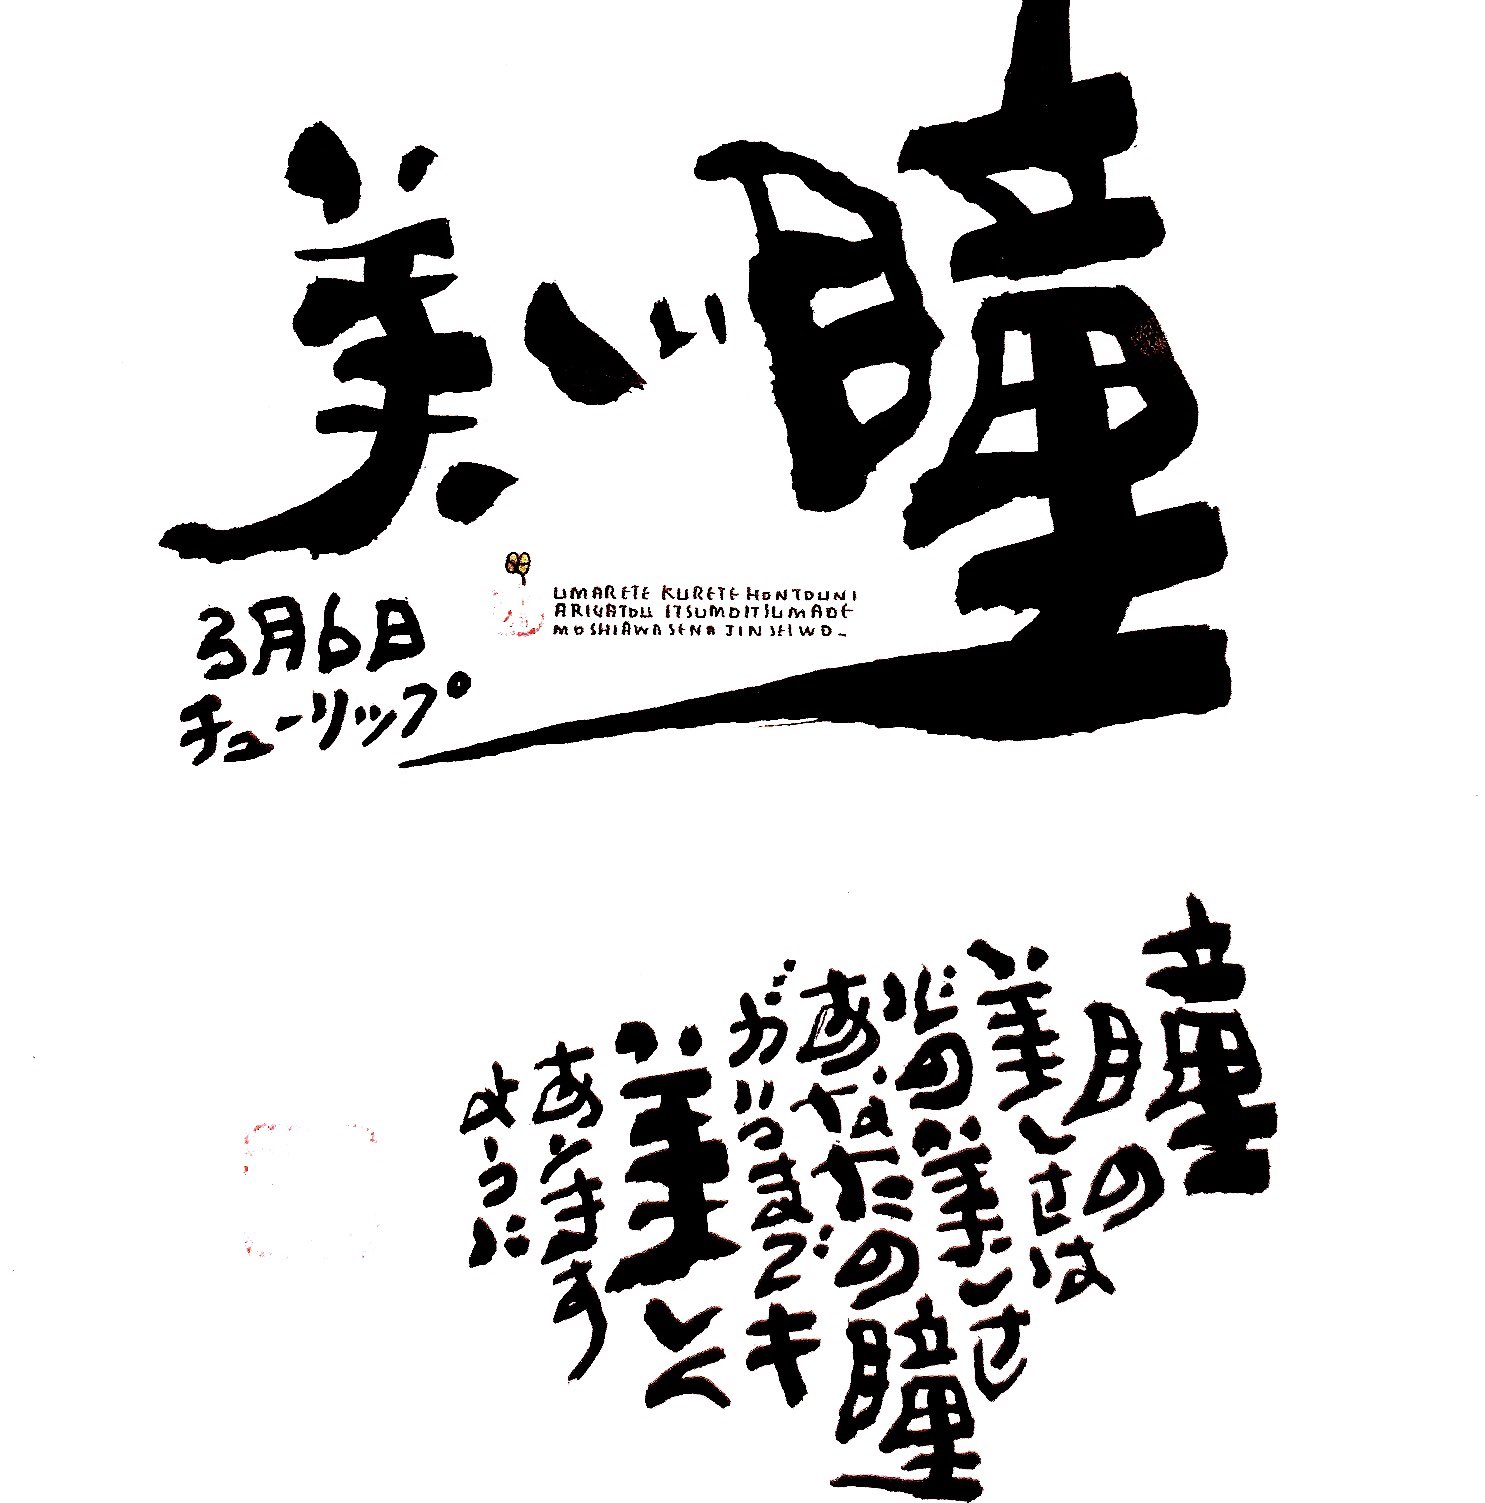 美しい瞳
3月6日
チューリップ
UMARETE KURETE HONTOUNI
ARIGATOU ITSUMOITSUMADE
MO SHIAWASENA JINSEIWO_
瞳の
美しさは
心の美しさ
あなたの瞳
がいつまでも
美しく
あります
ように